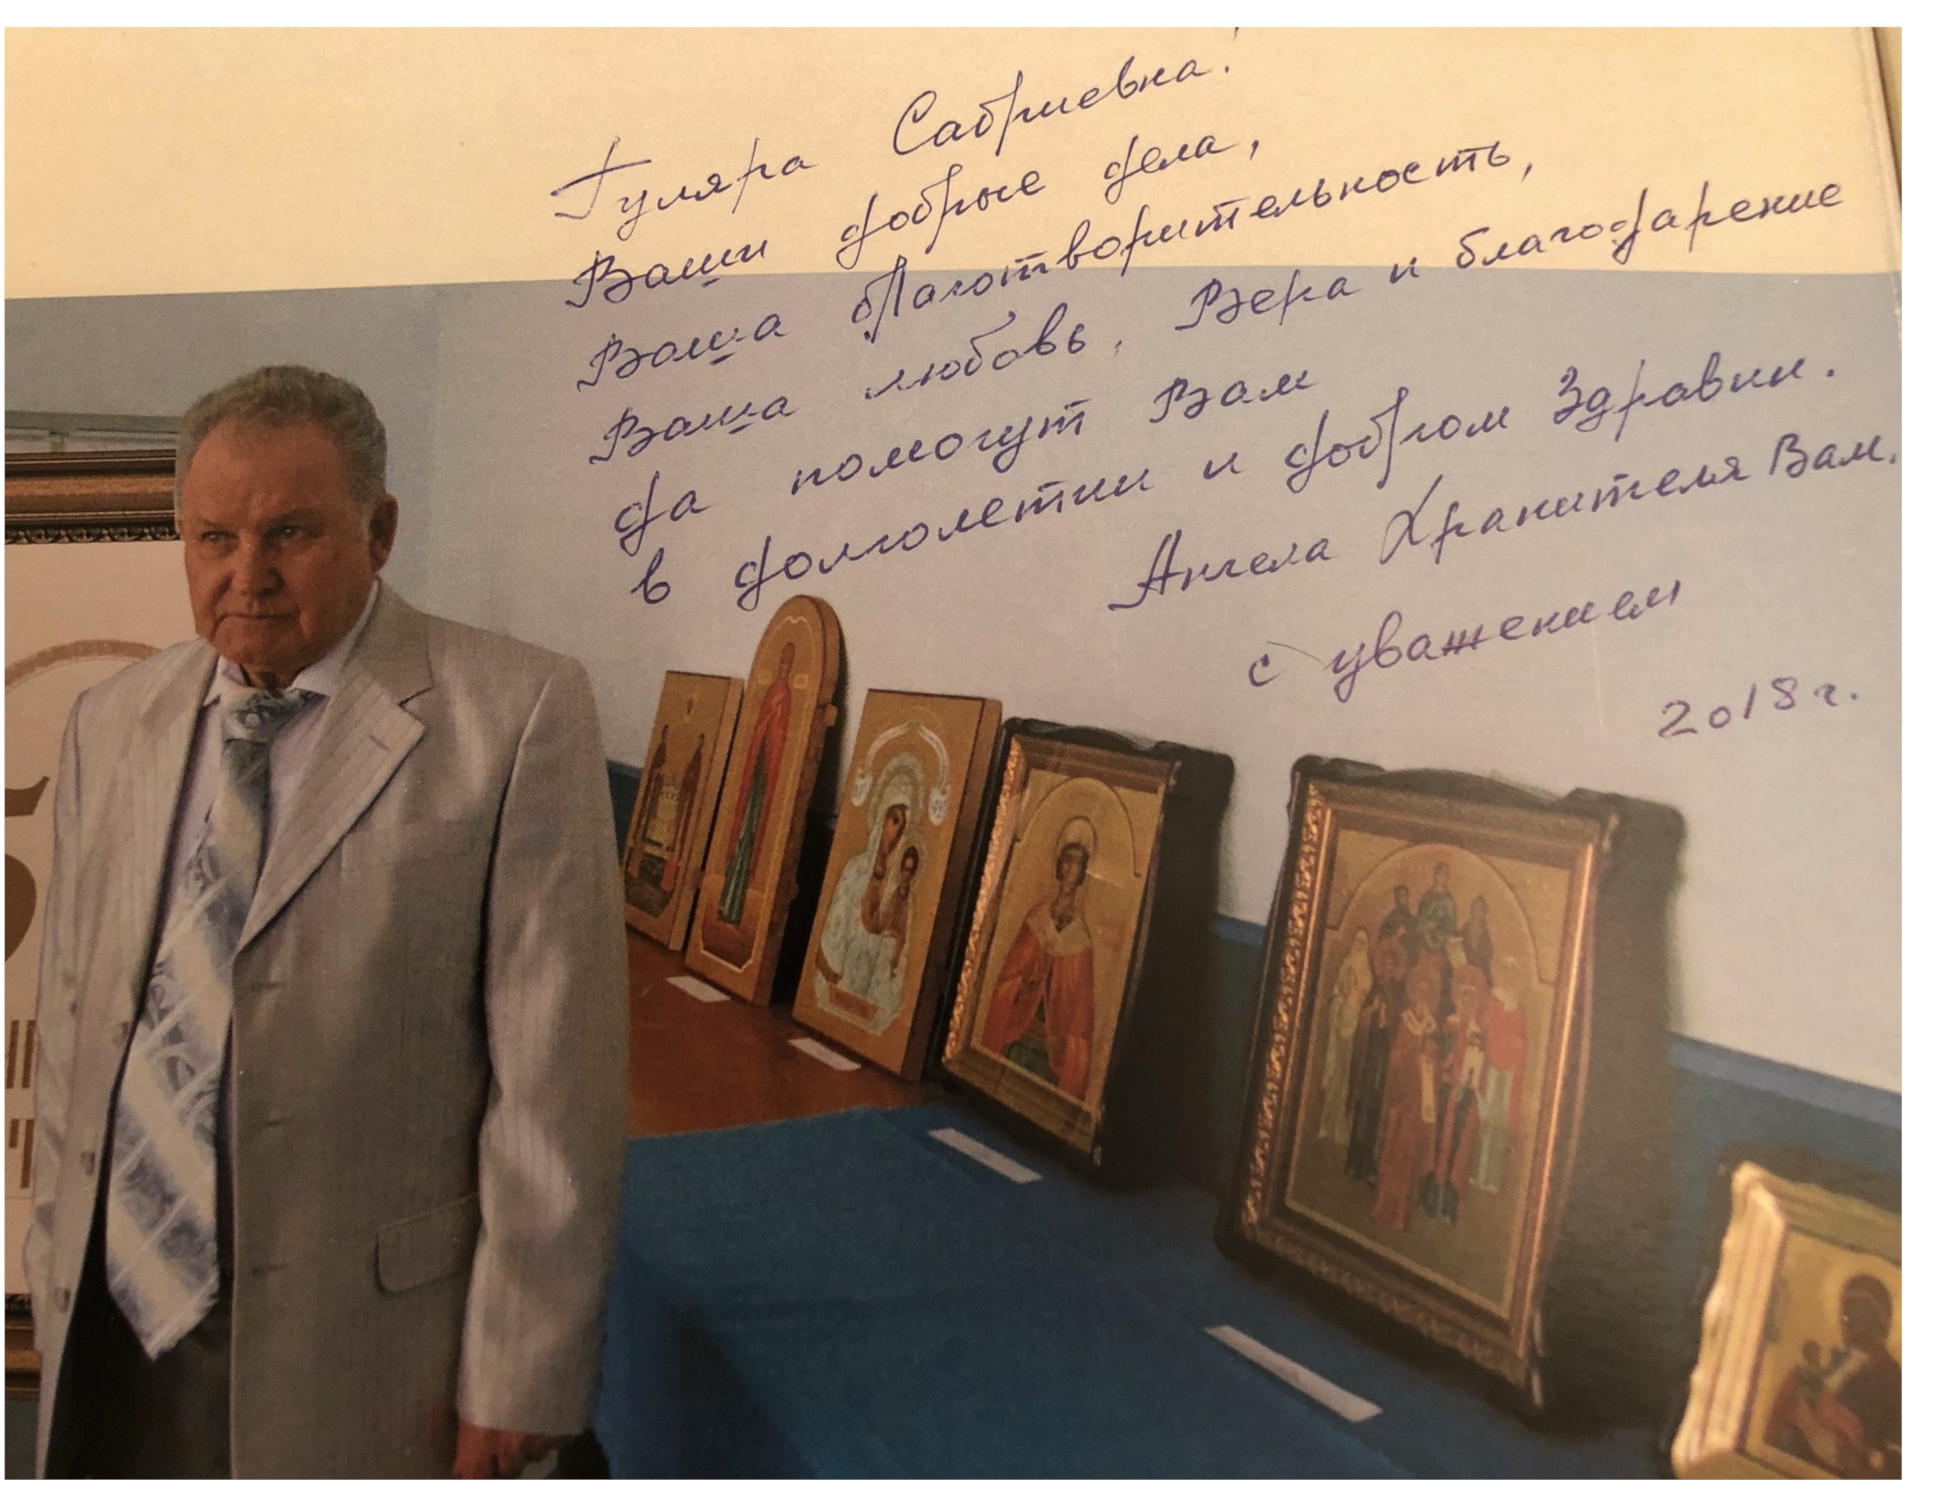 Гуляра Сабриевна!
Ваши добрые дела,
Ваша благотворительность,
Ваша любовь, Вера и благодарение
да помогут Вам
в долголетии и добром Здравии.
Ангела Хранителя Вам.
с уважением
2018 г.